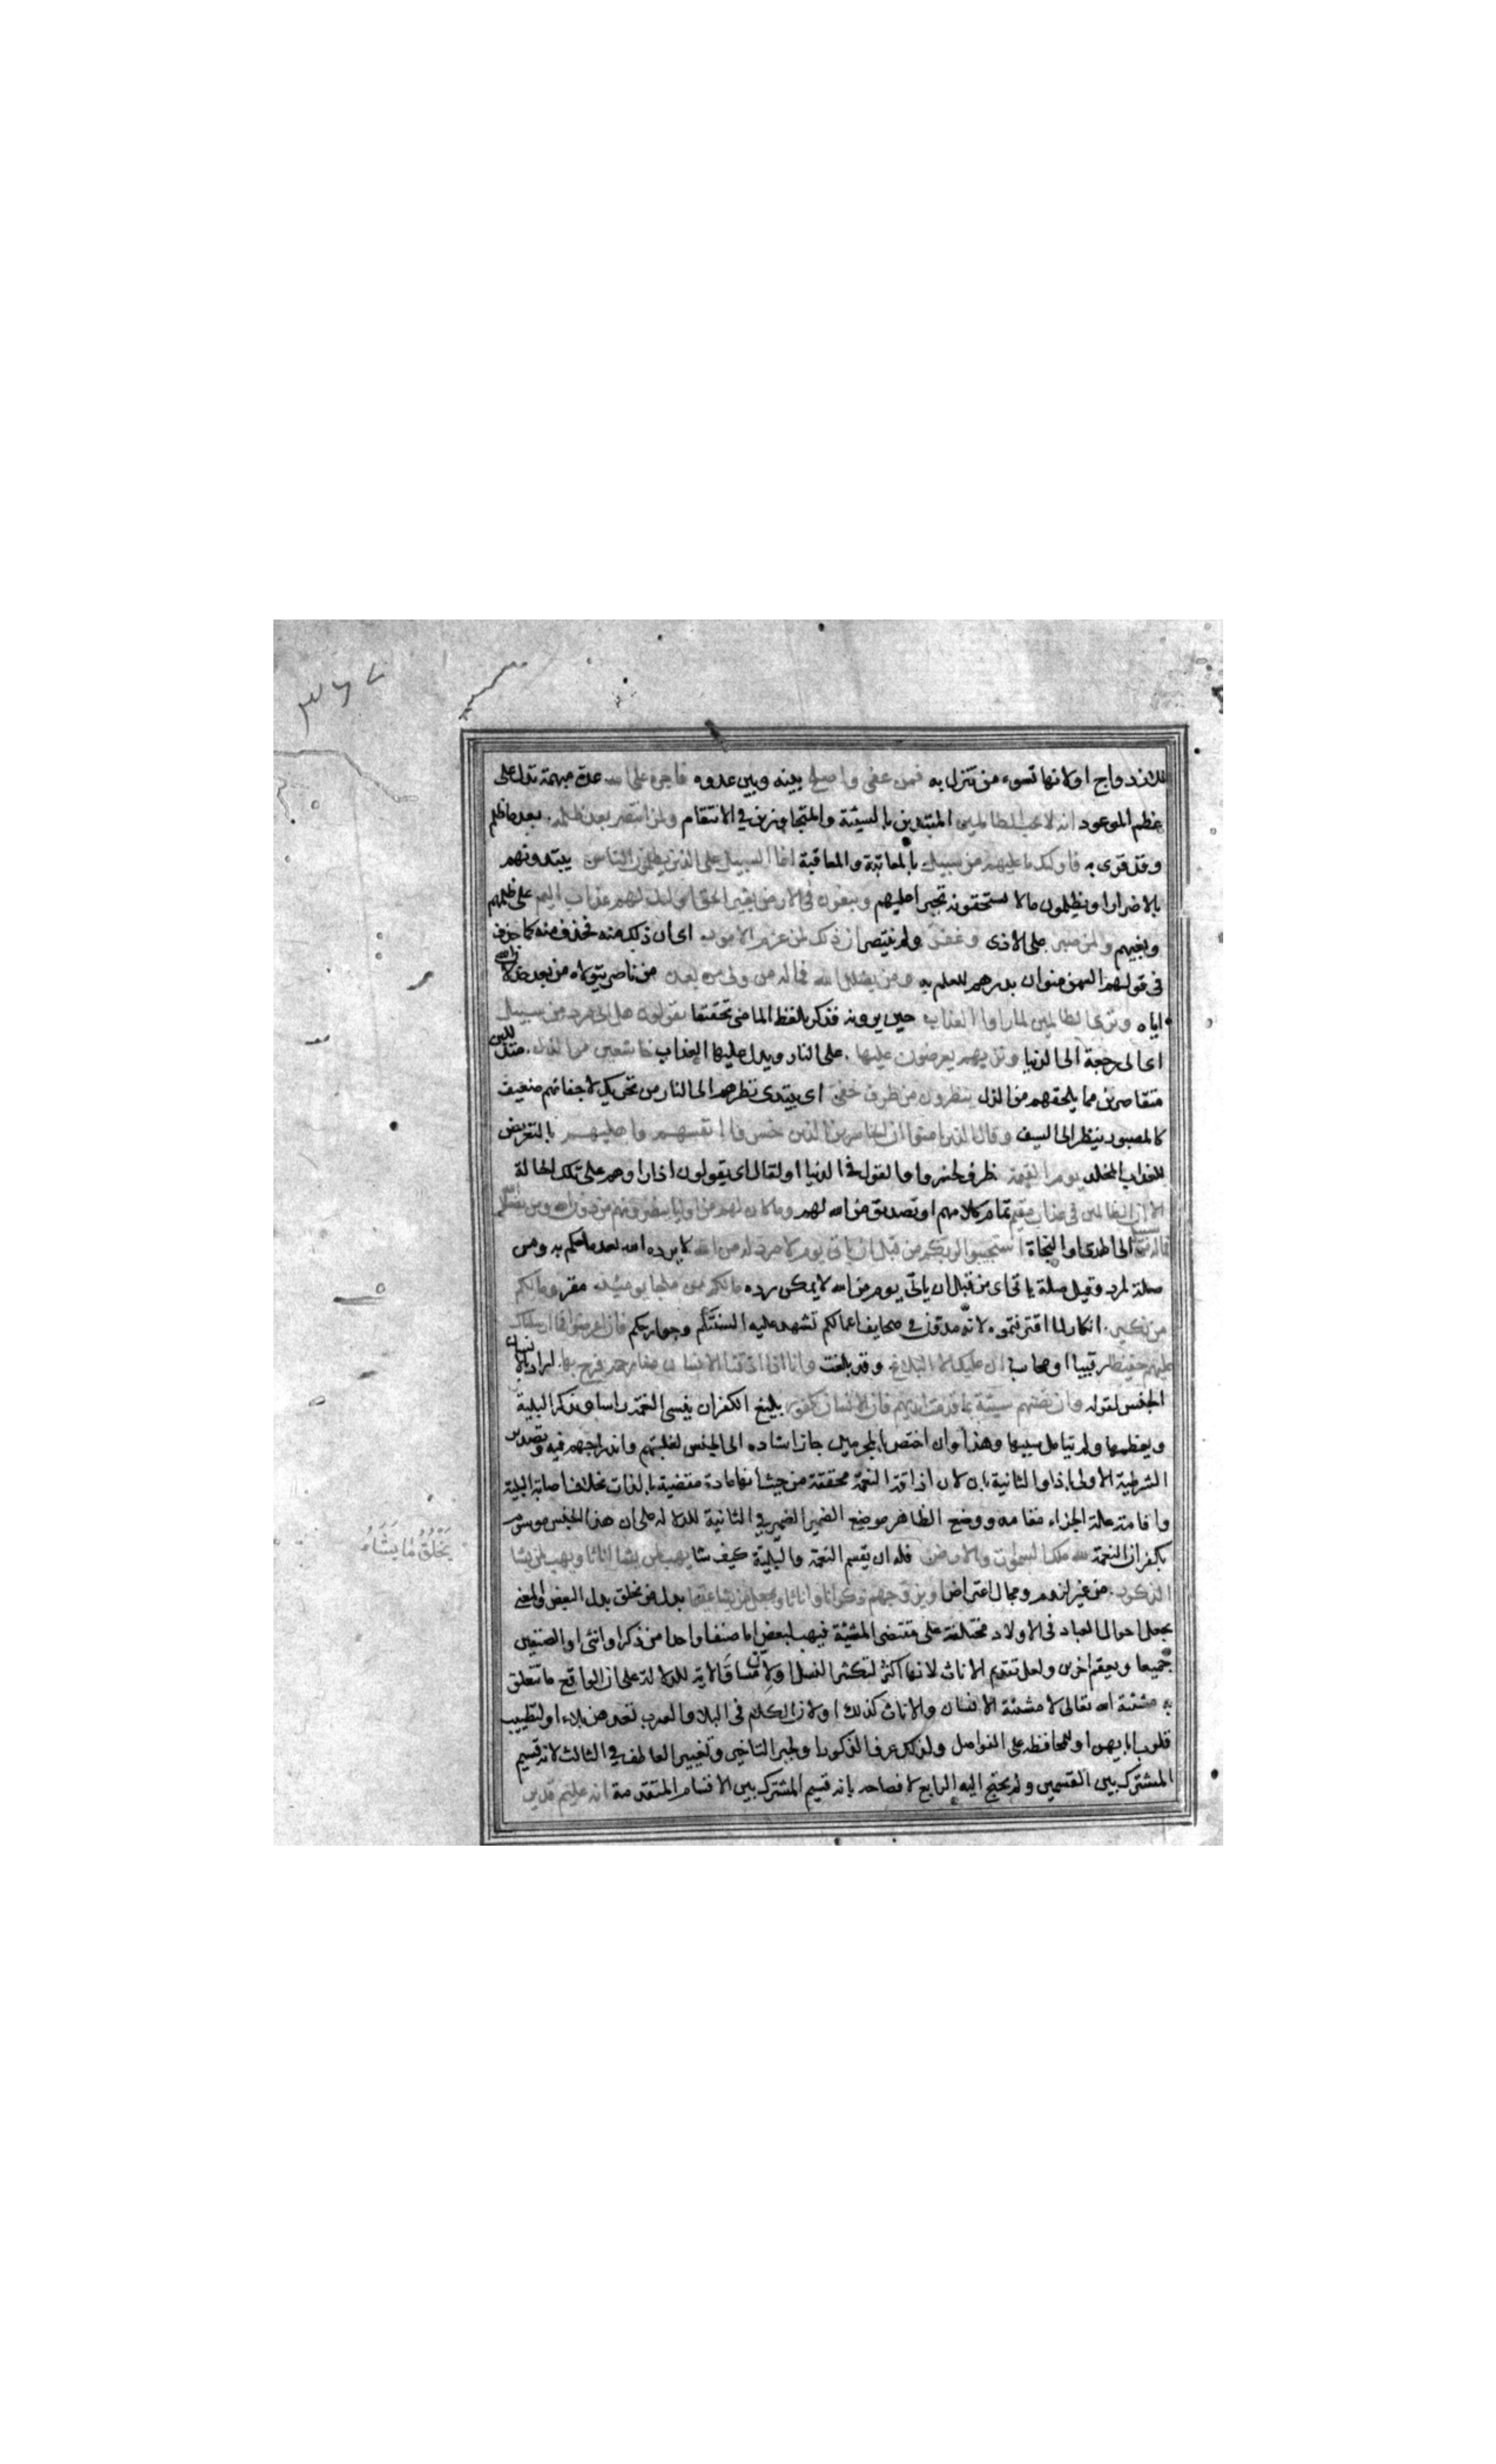 ٣٦٧
للازدواج اولانها تسوء من تنزل به فمن عفى واصلح بينه وبين عدوه فاجره على الله عدة مبهمة تدل على
عظم الموعود انه لا يحب الظالمين المبتدين بالسيئة والمتجاوزين في الانتقام ولمن انتصر بعد ظلمه بعد ما ظلم
وقد قرئ به فاولئك ما عليهم من سبيل بالمعاتبة والمعاقبة انما السبيل على الذين يظلمون الناس يبتدونهم
بالاضرار او يظلمون ما لا يستحقونه تجبرا عليهم ويبغون في الارض بغير الحق اولئك لهم عذاب اليم على ظلمهم
وبغيهم ولمن صبر على الاذى وغفر ولم ينتصر ان ذلك لمن عزم الامور اى ان ذلك منه فحذف منه كما حذف
فى قولهم السمن منوان بدرهم للعلم به ومن يضلل الله فما له من ولى من بعده من ناصر يتولاه من بعد خذلان الله
اياه وترى الظالمين لما راوا العذاب حين يرونه فذكر بلفظ الماضى تحققا يقولون هل الى مرد من سبيل
اى الى رجعة الى الدنيا وتريهم يعرضون عليها على النار ويدل عليها العذاب خاشعين من الذل متذللين
متقاصرين مما يلحقهم من الذل ينظرون من طرف خفى اى يبتدى نظرهم الى النار من تحريك لاجفانهم ضعيف
كالمصبور ينظر الى السيف وقال الذين امنوا ان الخاسرين الذين خسروا انفسهم واهليهم بالتعريض
للعذاب المخلد يوم القيمة ظرف لخسروا والقول في الدنيا او لقال اى يقولون اذا راوهم على تلك الحالة
الا ان الظالمين فى عذاب مقيم تمام كلامهم او تصديق من الله لهم وما كان لهم من اولياء ينصرونهم من دون الله ومن يضلل الله
فما له من سبيل الى الهدى او النجاة استجيبوا لربكم من قبل ان ياتى يوم لا مرد له من الله لا يرده الله بعد ما حكم به ومن
صلة لمرد وقيل صلة ياتى اى من قبل ان ياتى يوم من الله لا يمكن رده ما لكم من ملجا يومئذ مفر وما لكم
من نكير انكار لما اقترفتموه لانه مدون في صحايف اعمالكم تشهد عليه السنتكم وجوارحكم فان اعرضوا فما ارسلناك
عليهم حفيظا رقيبا او محاسبا ان عليك الا البلاغ وقد بلغت وانا اذا اذقنا الانسان منا رحمة فرح بها اراد بالانسان
الجنس لقوله وان تصبهم سيئة بما قدمت ايديهم فان الانسان كفور بليغ الكفران ينسى النعمة راسا ويذكر البلية
ويعظمها ولم يتامل سببها وهذا وان اختص بالمجرمين جاز اسناده الى الجنس لغلبتهم واندراجهم فيه وتصدير
الشرطية الاولى باذا والثانية بان لان اذاقة النعمة محققة من حيث انها عادة مقتضية بالذات بخلاف اصابة البلية
واقامة علة الجزاء مقامه ووضع الظاهر موضع الضمير الضمير في الثانية للدلالة على ان هذا الجنس موسوم
بكفران النعمة لله ملك السموات والارض فله ان يقسم النعمة والبلية كيف شا يهب لمن يشا اناثا ويهب لمن يشا
الذكور من غير لزوم ومجال اعتراض او يزوجهم ذكرانا واناثا ويجعل من يشا عقيما بدل من يخلق بدل البعض والمعنى
يجعل احوال العباد فى الاولاد مختلفة على مقتضى المشيئة فيهب لبعض اما صنفا واحدا من ذكر او انثى او الصنفين
جميعا ويعقم اخرين ولعل تقديم الاناث لانها اكثر لتكثير النسل او لان مساق الاية للدلالة على ان الواقع ما تتعلق
به مشيئة الله تعالى لا مشيئة الانسان والاناث كذلك او لان الكلام فى البلاء والعرب تعدهن بلاء او لتطييب
قلوب ابايهن او للمحافظة على الفواصل ولذلك عرف الذكور او لجبر التاخير وتغيير العاطف في الثالث لانه قسيم
المشترك بين القسمين ولم يحتج اليه الرابع لافصاحه بانه قسيم المشترك بين الاقسام المتقدمة انه عليم قدير
يخلق ما يشاء